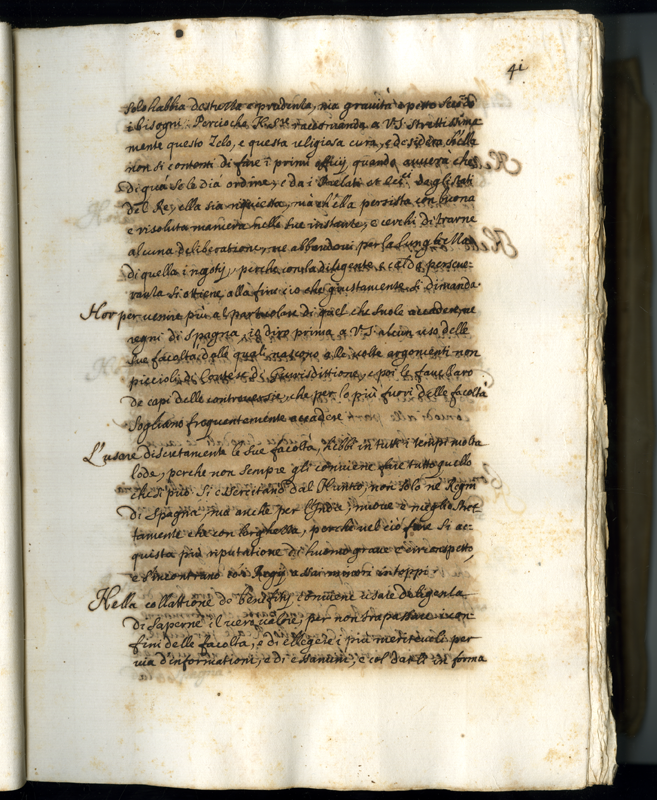 41
solo habbia destrezza e prudenza, ma gravità e petto secõdo
i bisogni. Percioche N. S.re raccomanda a V.S. strettissima
mente questo Zelo, e questa religiosa cura, e desidera ch'ella
non si contenti di fare i primi officij, quando avverà che
di quà se le dia ordine, e da i Prelati et Ecc.i degli stati
del Re, ella sia richiesta, mà ch'ella persista con buona
e risoluta maniera nelle sue instanze, e cerchi di trarne
alcuna deliberatione, ne abbandoni per la lunghezza
di quella i negotij, perche con la diligente, e calda perseue-
ranza si ottiene alla fine ciò che giustamente si dimanda.
Hor per venire più al particolare di quel che suole accadere, ne
regni di Spagna, io diro prima a V.S. alcun uso delle
sue facoltà, dalle quali nascono alle volte argomenti non
piccioli di Contese di Giurisdittione, e poi le favellaro
de capi delle controversie, che per lo più fuori delle facoltà
sogliano frequentemente accadere.
L'usare discretamente le sue facoltà, hebbe in tutti i tempi molta
lode, perche non sempre gli conviene fare tutto quello
che si può. Si essercitano dal Nuntio, non solo ne Regni
di Spagna, ma anche per l'Indie, muove è meglio stret
tamente che con larghezza, perche nel ciò fare si ac-
quista più riputatione di huomo grave e circonspetto,
e s'incontrano con Regij assai minori intoppi.
Nella collattione de Benefitij conviene usare diligenza
di saperne il vero valore, per non trapassare i con-
fini delle facoltà, e di eleggere i più meritevoli per
via d'informationi, e di essamini, e col darli in forma